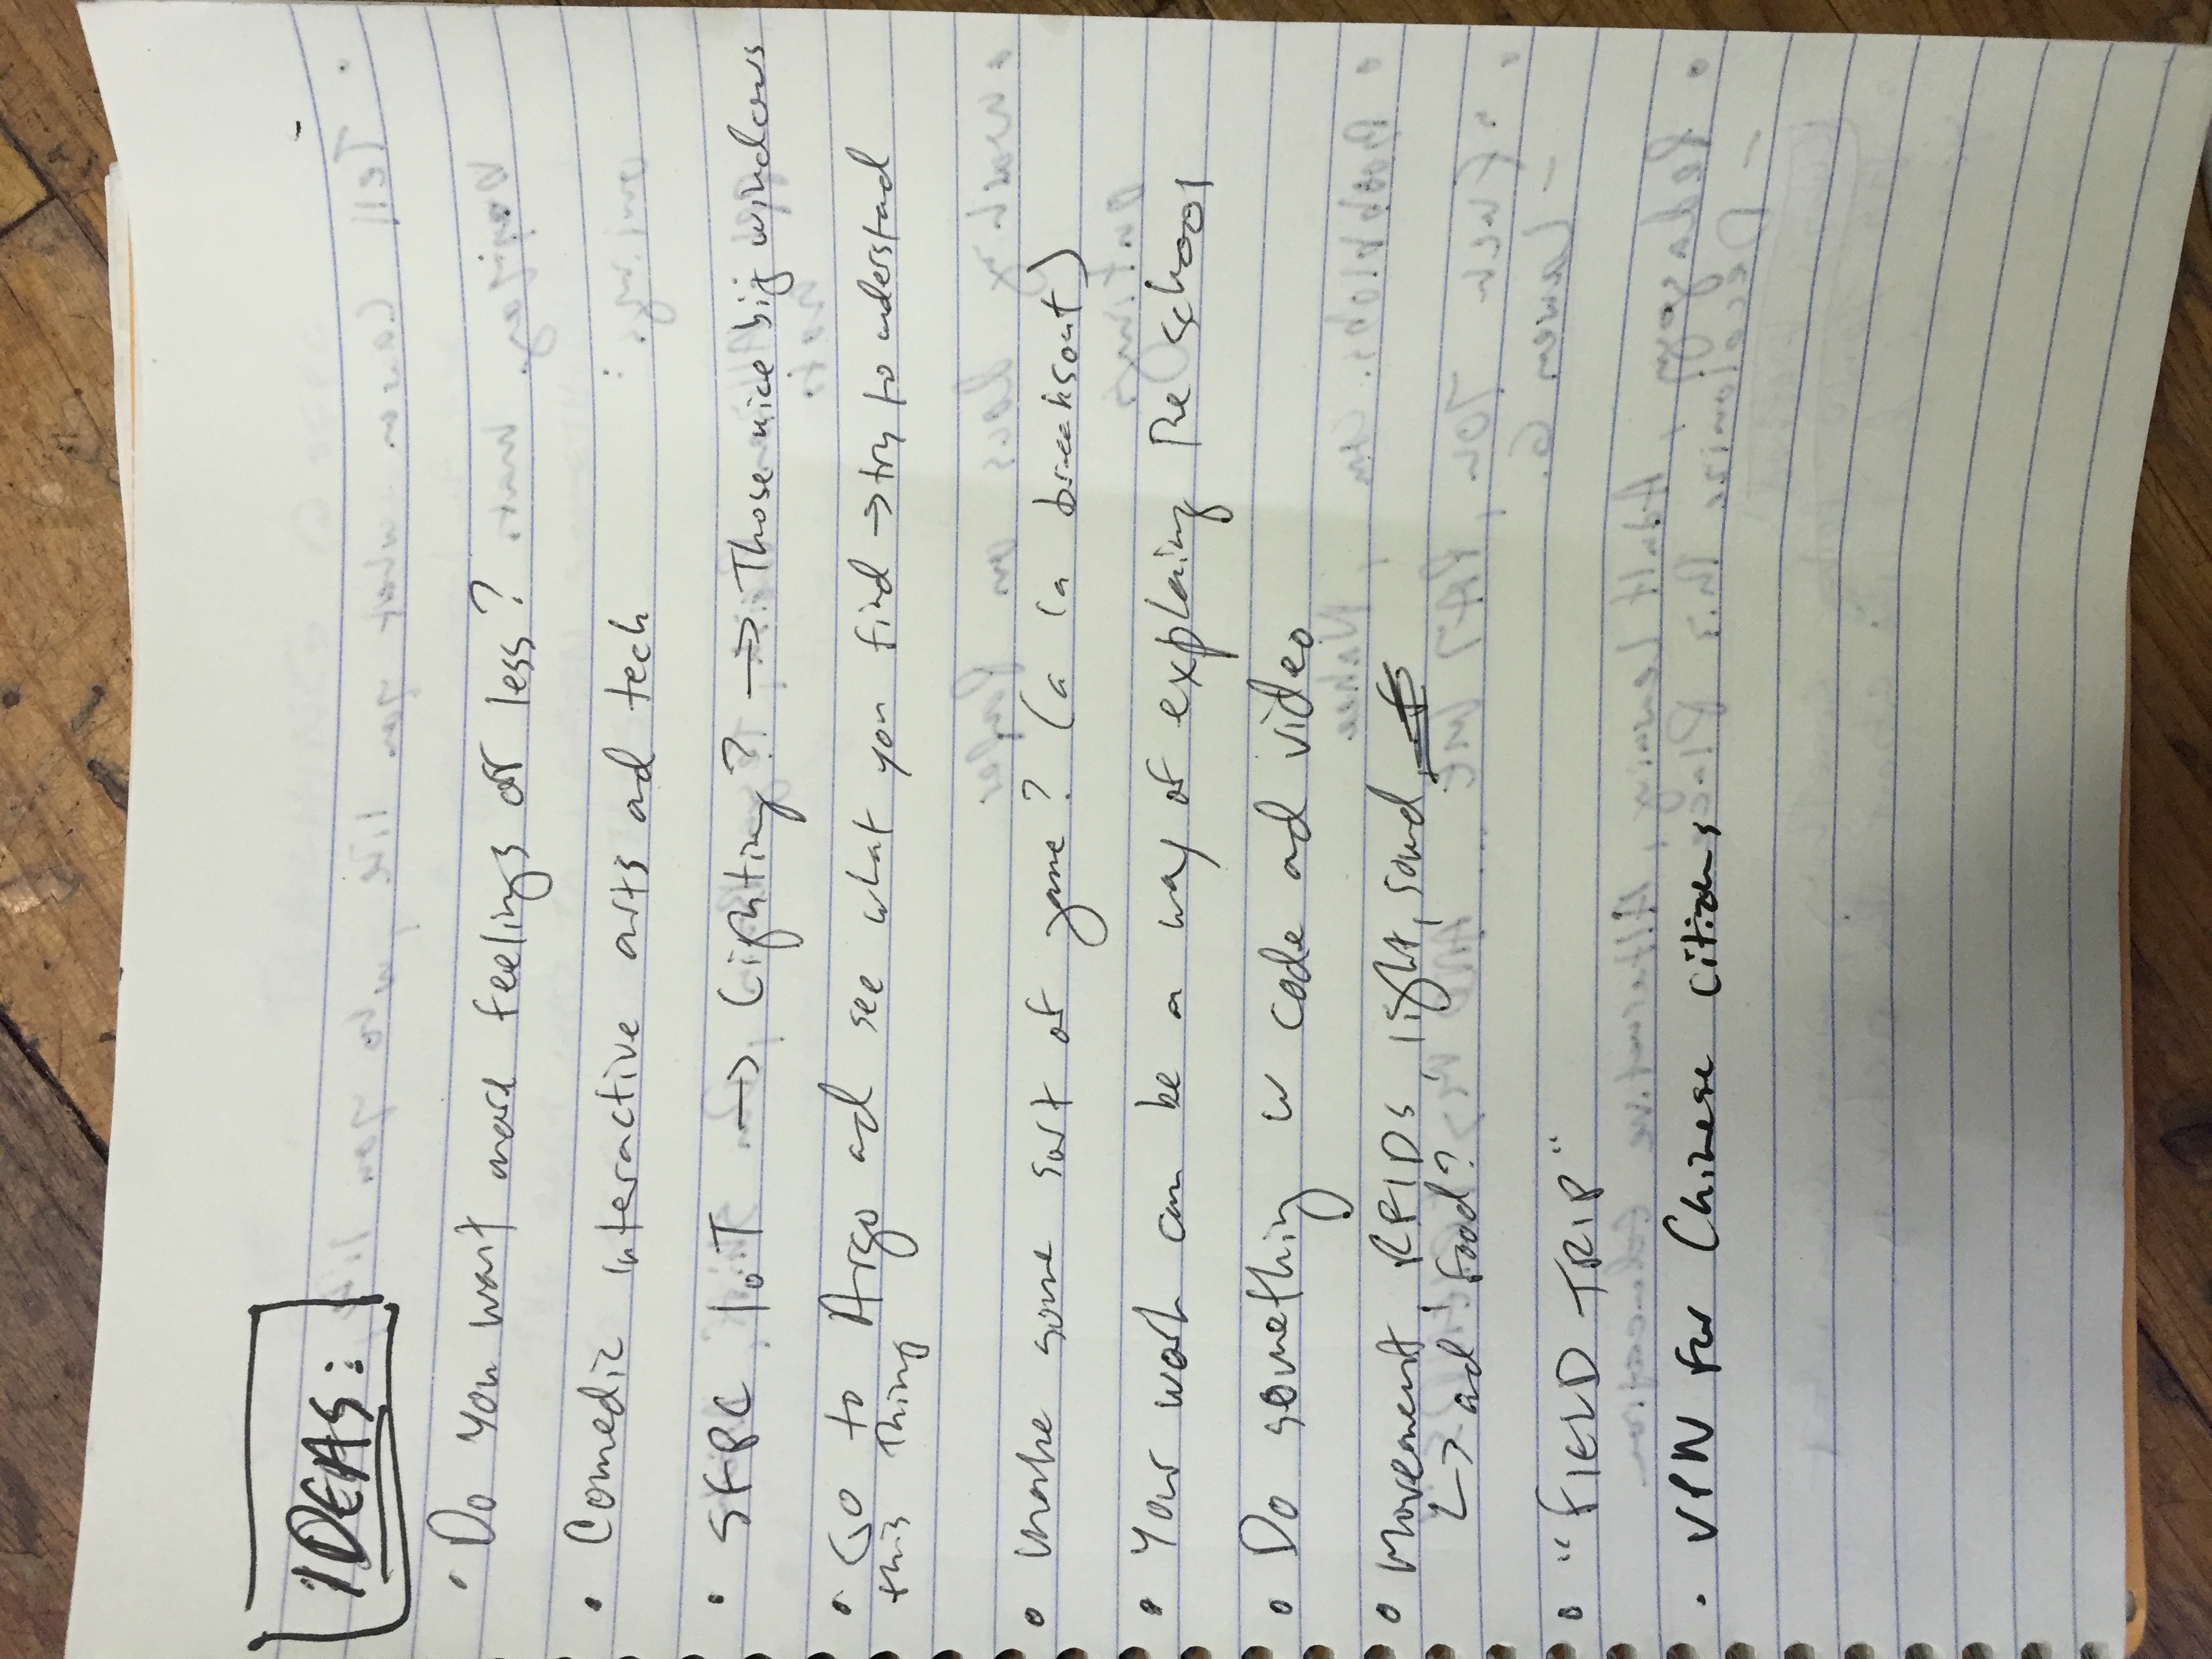 IDEAS:
• Do you want more feelings or less?
• Comedic interactive arts and tech
• SFPC IoT → Lighting? → Those nice big windows
• Go to Argo and see what you find → try to understand
this thing
• Make some sort of game? (a la breaksout)
• Your work can be a way of explaining the school
• Do something w code and video
• Movement, RFIDs, light, sound,
↳ and food?
• "FIELD TRIP"
• VPN for Chinese citizens